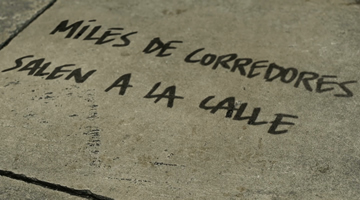 MILES DE CORREDORES
SALEN A LA CALLE